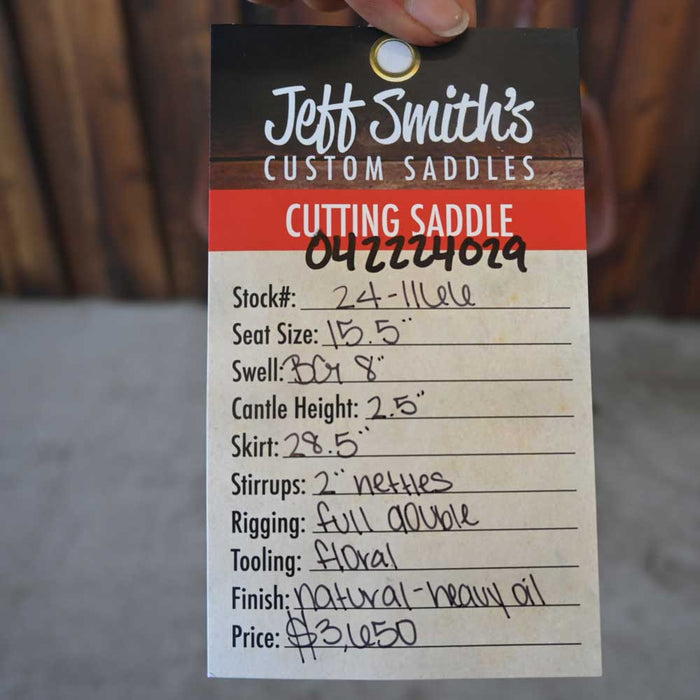 Jeff Smith's
CUSTOM SADDLES
CUTTING SADDLE
042224029
Stock#: 24-1166
Seat Size: 15.5"
Swell: BCr 8"
Cantle Height: 2.5"
Skirt: 28.5"
Stirrups: 2" nettles
Rigging: full double
Tooling: floral
Finish: natural-heavy oil
Price: $3,650